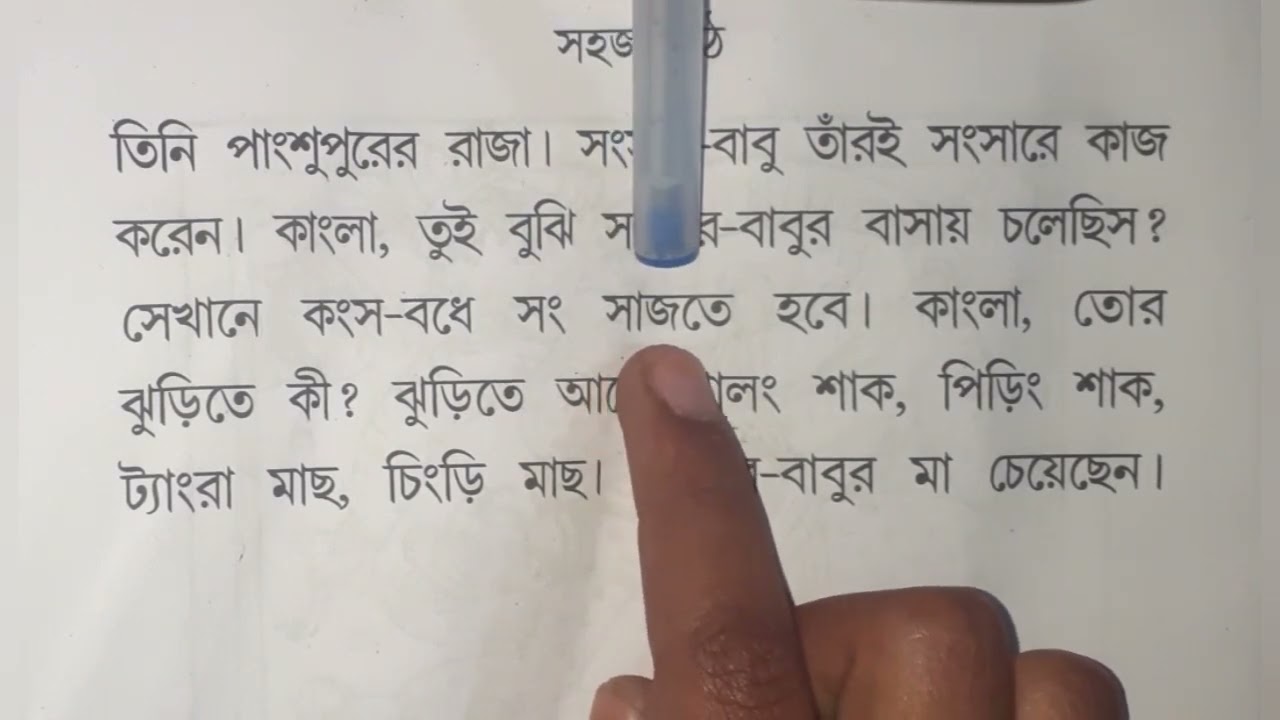 তিনি পাংশুপুরের রাজা। -বাবু তাঁরই সংসারে কাজ
করেন। কাংলা, তুই বুঝি -বাবুর বাসায় চলেছিস?
সেখানে কংস-বধে সং সাজতে হবে। কাংলা, তোর
ঝুড়িতে কী? ঝুড়িতে শাক, পিড়িং শাক,
ট্যাংরা মাছ, চিংড়ি মাছ। -বাবুর মা চেয়েছেন।